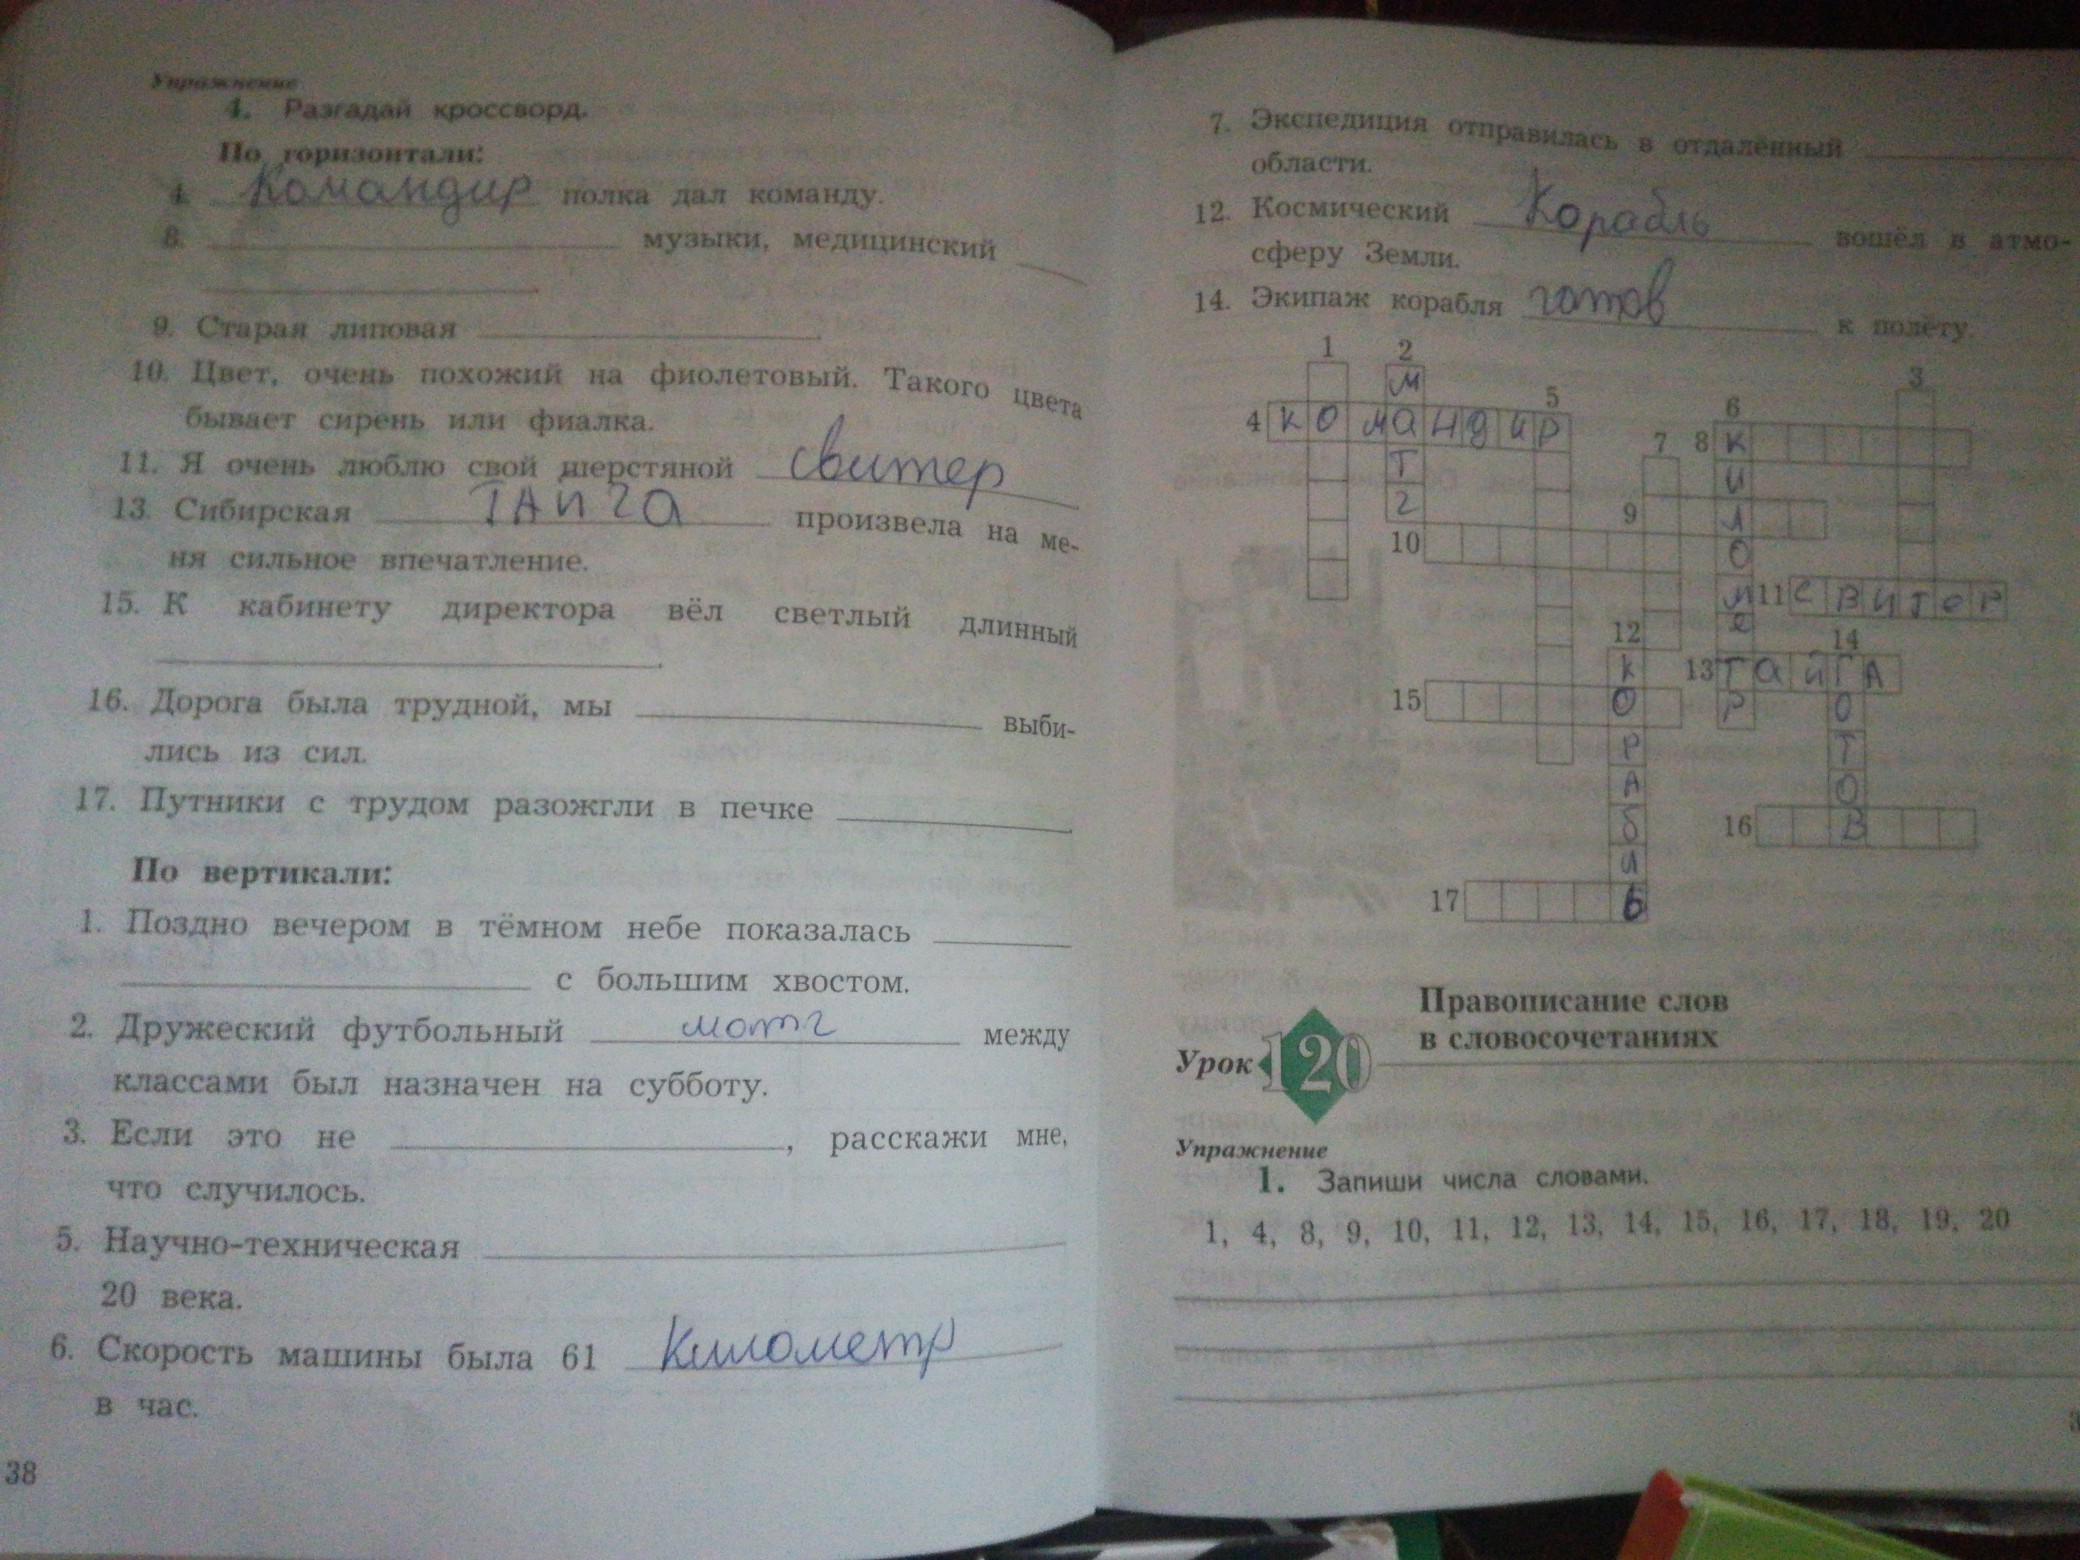 Упражнение
4. Разгадай кроссворд.
По горизонтали:
4. Командир полка дал команду.
8. музыки, медицинский
9. Старая липовая .
10. Цвет, очень похожий на фиолетовый. Такого цвета
бывает сирень или фиалка.
11. Я очень люблю свой шерстяной свитер
13. Сибирская ТАИГА произвела на ме-
ня сильное впечатление.
15. К кабинету директора вёл светлый длинный
.
16. Дорога была трудной, мы выби-
лись из сил.
17. Путники с трудом разожгли в печке .
По вертикали:
1. Поздно вечером в тёмном небе показалась
с большим хвостом.
2. Дружеский футбольный мотг между
классами был назначен на субботу.
3. Если это не , расскажи мне,
что случилось.
5. Научно-техническая
20 века.
6. Скорость машины была 61 Километр
в час.
38
7. Экспедиция отправилась в отдалённый
области.
12. Космический Корабль вошёл в атмо-
сферу Земли.
14. Экипаж корабля готов к полёту.
1 2 3
М
4 КОМАНДИР 5 6
7 8 К
Т И
Г 9 Л
10 О
М 11 СВИТЕР
12 е 14
К 13 ТАЙГА
15 О Р О
Р Т
А О
Б 16 В
И
17 Ь
Урок 120
Правописание слов
в словосочетаниях
Упражнение
1. Запиши числа словами.
1, 4, 8, 9, 10, 11, 12, 13, 14, 15, 16, 17, 18, 19, 20
3